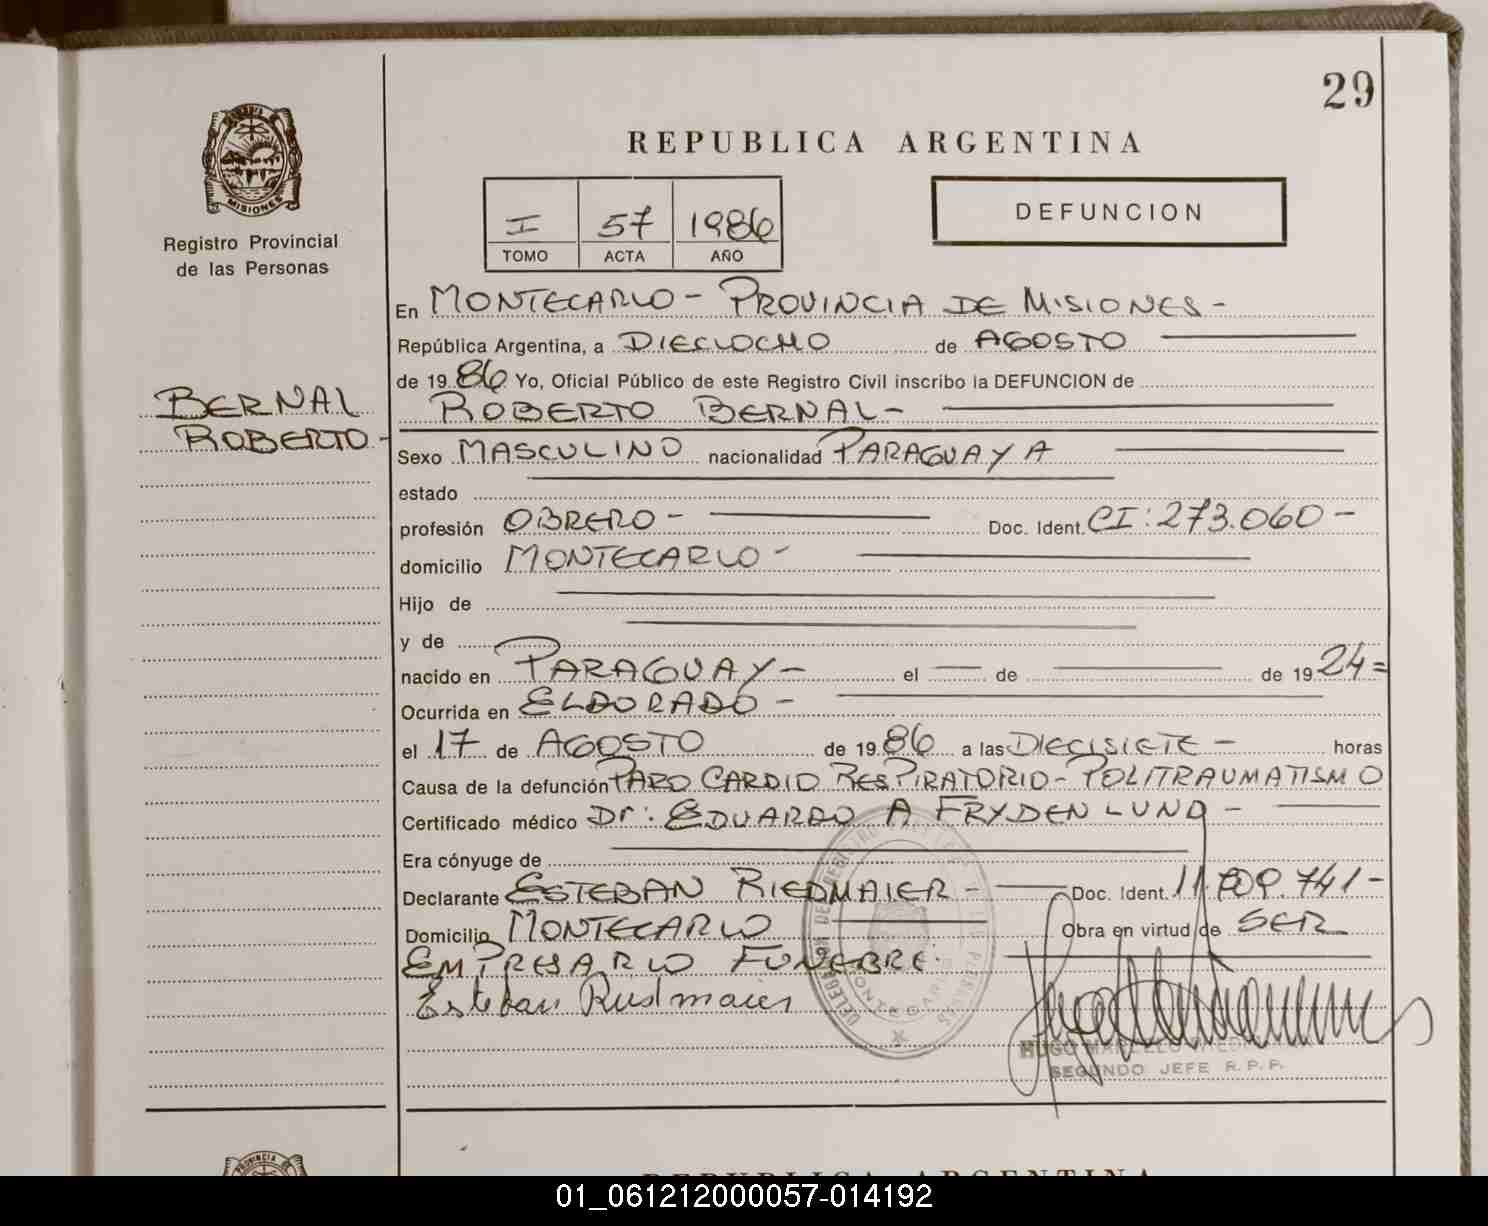 29
REPUBLICA ARGENTINA
MISIONES
Registro Provincial
de las Personas
I 57 1986
TOMO ACTA AÑO
DEFUNCION
En MONTECARLO - PROVINCIA DE MISIONES -
República Argentina, a DIECIOCHO de AGOSTO
de 1986 Yo, Oficial Público de este Registro Civil inscribo la DEFUNCION de
BERNAL
ROBERTO -
ROBERTO BERNAL -
Sexo MASCULINO nacionalidad PARAGUAYA
estado
profesión OBRERO - Doc. Ident. CI: 273.060 -
domicilio MONTECARLO -
Hijo de
y de
nacido en PARAGUAY - el de de 1924 =
Ocurrida en ELDORADO -
el 17 de AGOSTO de 1986 a las DIECISIETE - horas
Causa de la defunción PARO CARDIO RESPIRATORIO - POLITRAUMATISMO
Certificado médico Dr: EDUARDO A FRYDENLUND -
Era cónyuge de
Declarante ESTEBAN RIEDMAIER - Doc. Ident. 11. .741 -
Domicilio MONTECARLO Obra en virtud de SER
EMPRESARIO FUNEBRE.
Esteban Riedmaier
HUGO MARCELO
SEGUNDO JEFE R.P.P.
PROVINCIA DE
REPUBLICA ARGENTINA
01_061212000057-014192